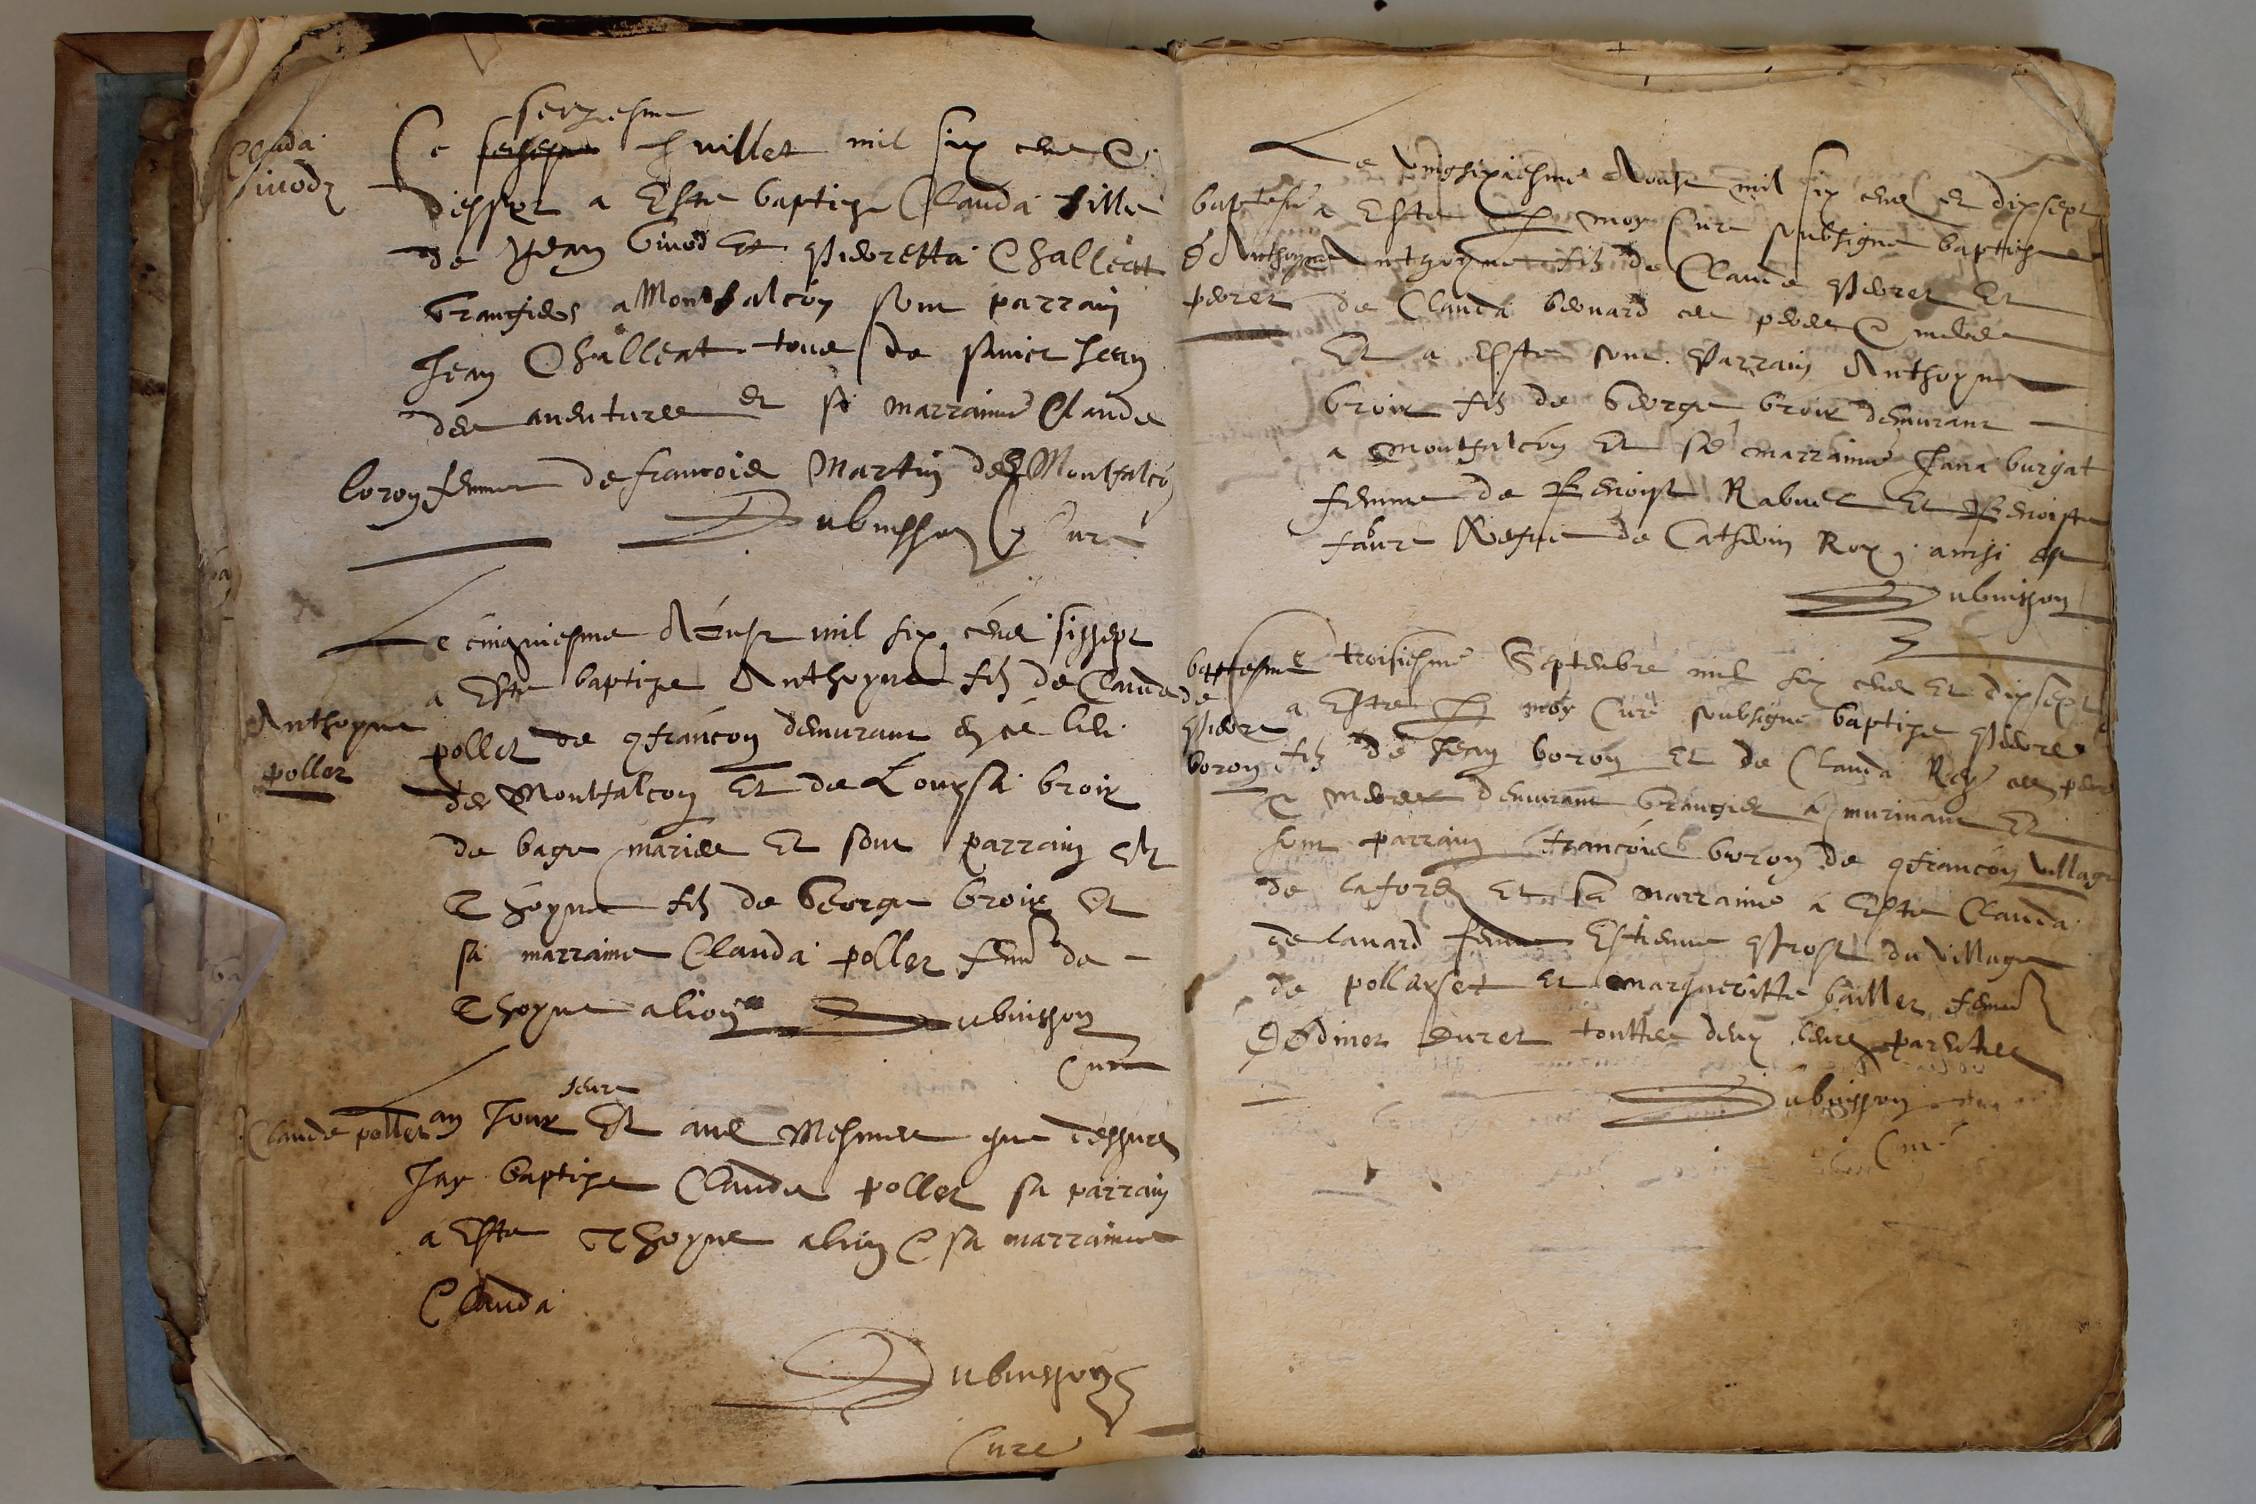 Clauda
Guiodz
seiziesme
Ce Juillet mil six cens et
dissept a este baptize Clauda fille
de Jean Guiod et Pierretta Challeat
Grangiers a Montfalcon son parrain
Jean Challeat tous de sainct Jean
des aventures et sa marraine Claude
boron femme de francois Martin de Montfalcon
Dubuisson Curé
Le cinquiesme Aoust mil six cens dissept
a este baptize Anthoyne filz de Claude
Anthoyne
pollet
pollet de qfrancon demurant en ce lieu
de Montfalcon et de Loursa broix
de bage maries et son parrain est
Thoyne filz de George broix et
sa marraine Clauda pollet femme de
Thoyne alion Dubuisson
Curé
Claude pollet
heure
au Jour et an Mesmes que dessus
Jay baptize Claude pollet sa parrain
a este Thoyne alion et sa marraine
Clauda
Dubuisson
Curé
Le vingsixiesme Aoust mil six cens et dixsept
baptesme
d'Anthoyne
perret
a este par moy Curé soubsigne baptize
Anthoyne filz de Claude Pierret et
de Clauda benard ces peres et meres
et a este son Parrain Anthoyne
broix filz de George broix demurant
a Montfalcon et sa marraine Jana burgat
femme de Benoist Rabuel et Benoiste
faure de Cathein Rey ainsi est
Dubuisson
baptesme
de
Pierre
boron
Le troisiesme Septembre mil six cens et dixsept
a este par moy Curé soubsigne baptize Pierre
filz de Jean boron et de Clauda Rey ces peres
et meres demurant Grangier a murinant et
son parrain francois boron de qfrancon village
de lafores et sa marraine a este Clauda
delanard femme Estienne Prost du village
de pollayset et margueritte bailler femme
dodinet Duret touttes deux leurs parentes
Dubuisson
Curé